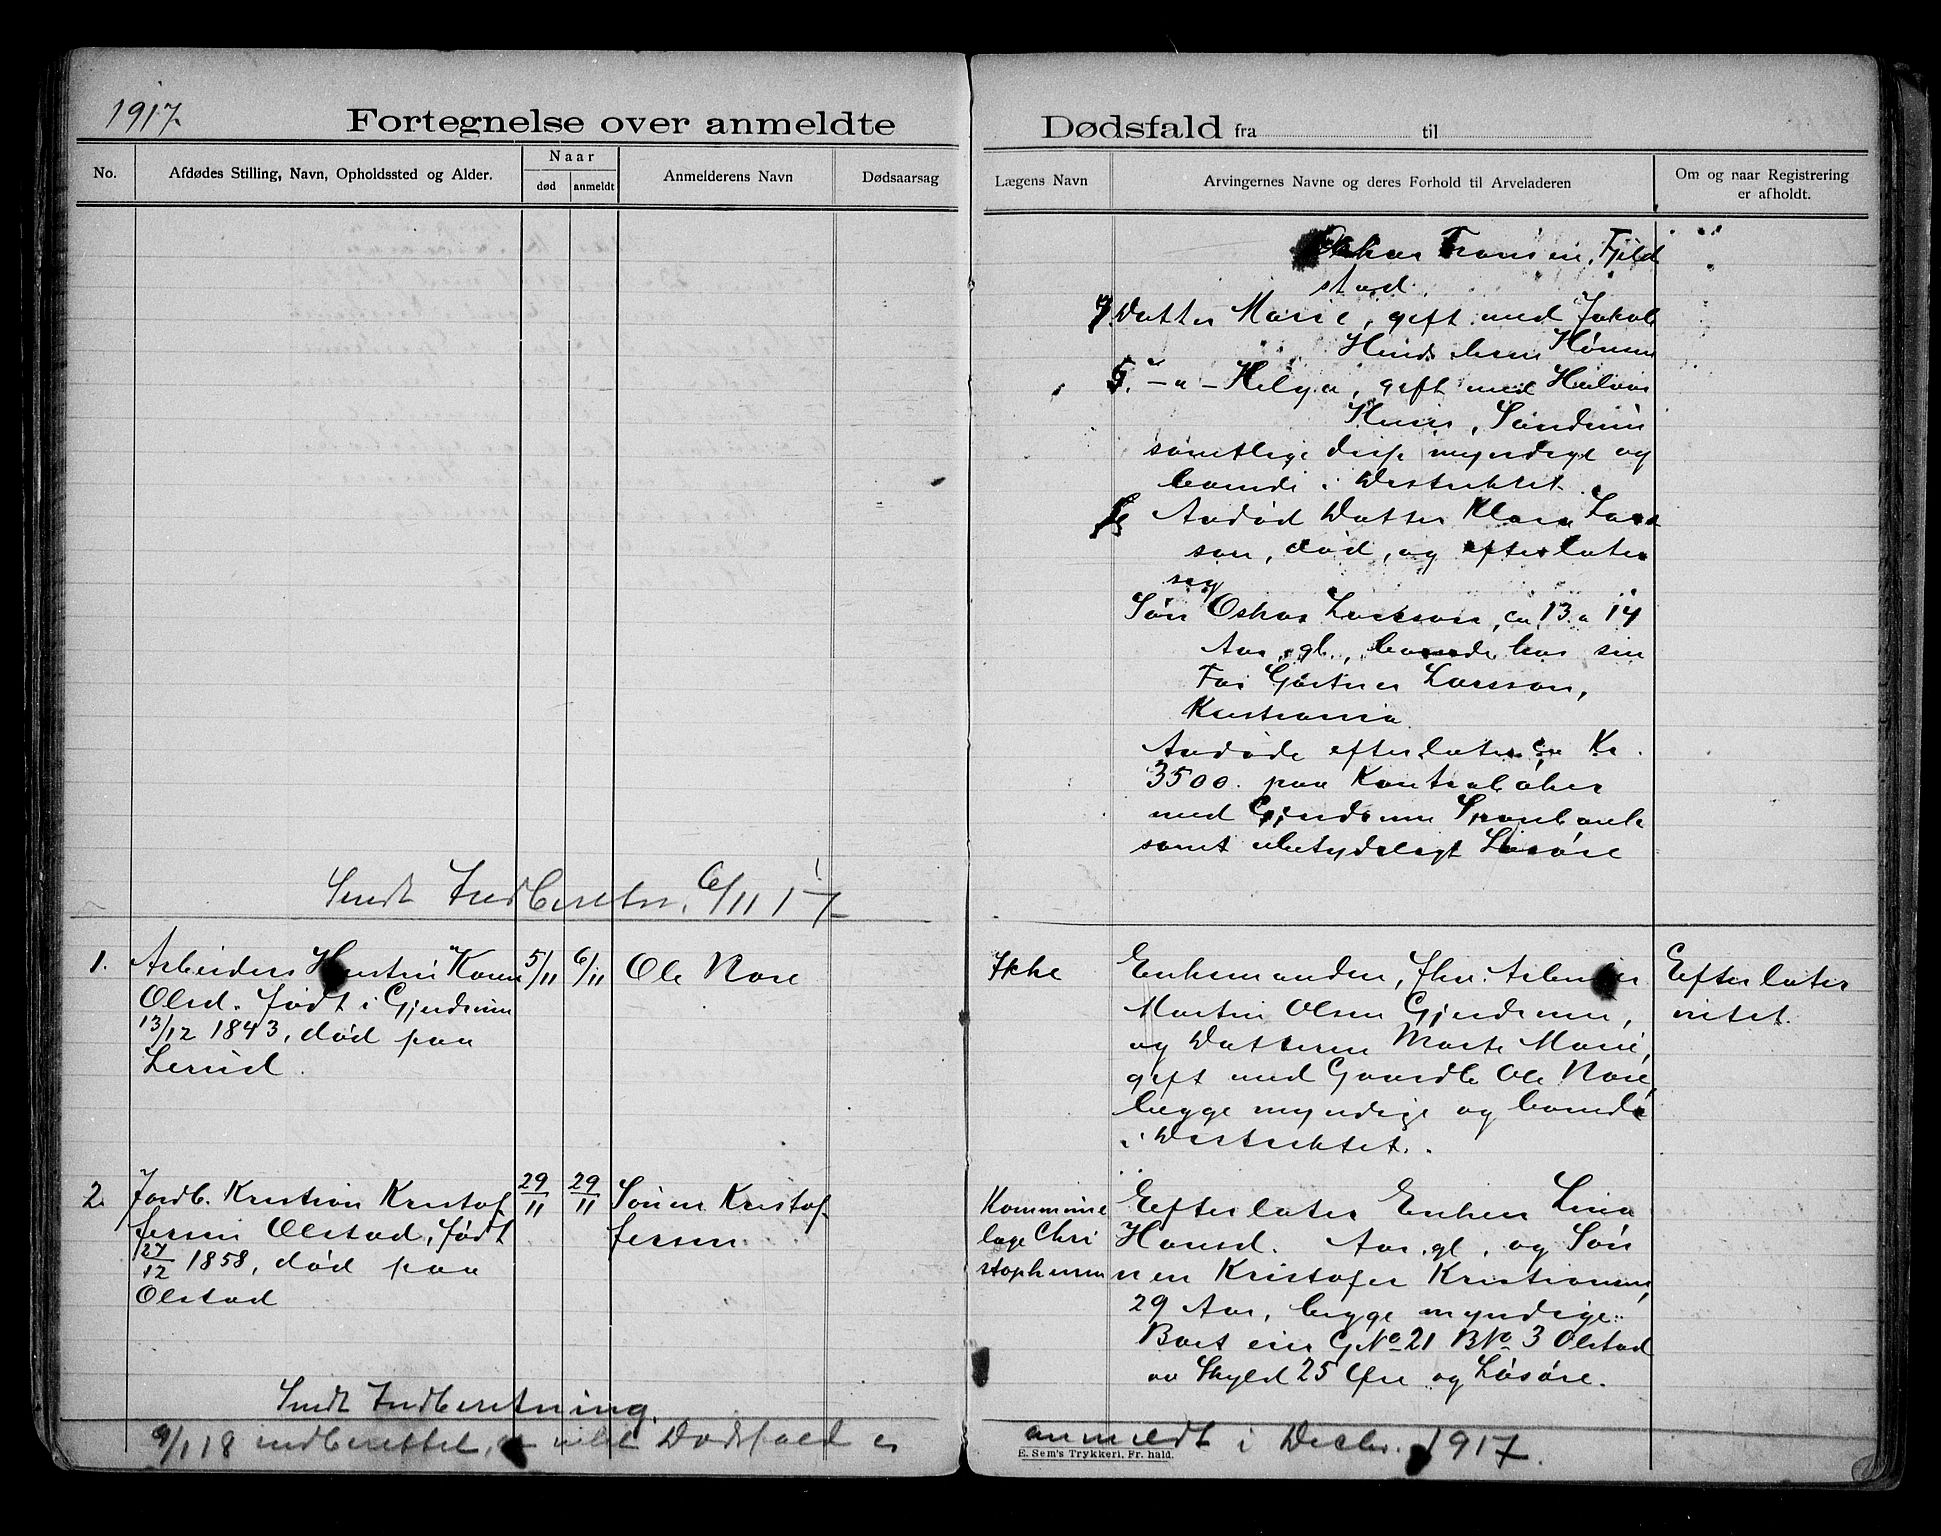 1917.
Fortegnelse over anmeldte Dødsfald fra til
No.
Afdødes Stilling, Navn, Opholdssted og Alder.
Naar
død
anmeldt
Anmelderens Navn
Dødsaarsag
Lægens Navn
Arvingernes Navne og deres Forhold til Arveladeren
Om og naar Registrering
er afholdt.
Fransen, Fjeld
stad.
Datter Marie, gift med Jakob
5. -"- Helga, gift med
samtlige disse myndige og
boende i Distriktet.
Avdød Datter Klara Lars
son, død, og efterlater
seg
Søn Oskar Larsson, ca 13 a 14
Aar gl., boende hos sin
Far Gartner Larsson,
Kristiania.
Avdøde efterlater ca Kr.
3500. paa Kontrabøker
med Gjerdrum Sparebank
samt ubetydeligt Løsøre
Sendt Indberetn. 6/11 17
1. Arbeiders Hustru Karen
Olsd. født i Gjerdrum
13/12 1843, død paa
Lerud.
5/11
6/11
Ole Nore
Ikke
Enkemanden, fhv. Arbeider
Martin Olsen Gjerdrum,
og Datteren Marte Marie,
gift med Gaardb. Ole Nore,
begge myndige og boende
i Distriktet.
Efterlater
intet.
2. Jordb. Kristian Kristof
fersen Olstad, født
27/12 1858, død paa
Olstad
29/11
29/11
Søren Kristof
fersen
Kommune
læge Chri
stophersen
Efterlater Enken Lina
Hansd. Aar gl., og Søn
nen Kristofer Kristiansen,
29 Aar, begge myndige.
Boet eier G.No 21 B.No 3 Olstad
av Skyld 25 Øre og Løsøre.
Sendt Indberetning.
9/1 18 indberettet, at intet Dødsfald er
anmeldt i Decbr. 1917.
E. Sem's Trykkeri, Fr.hald.